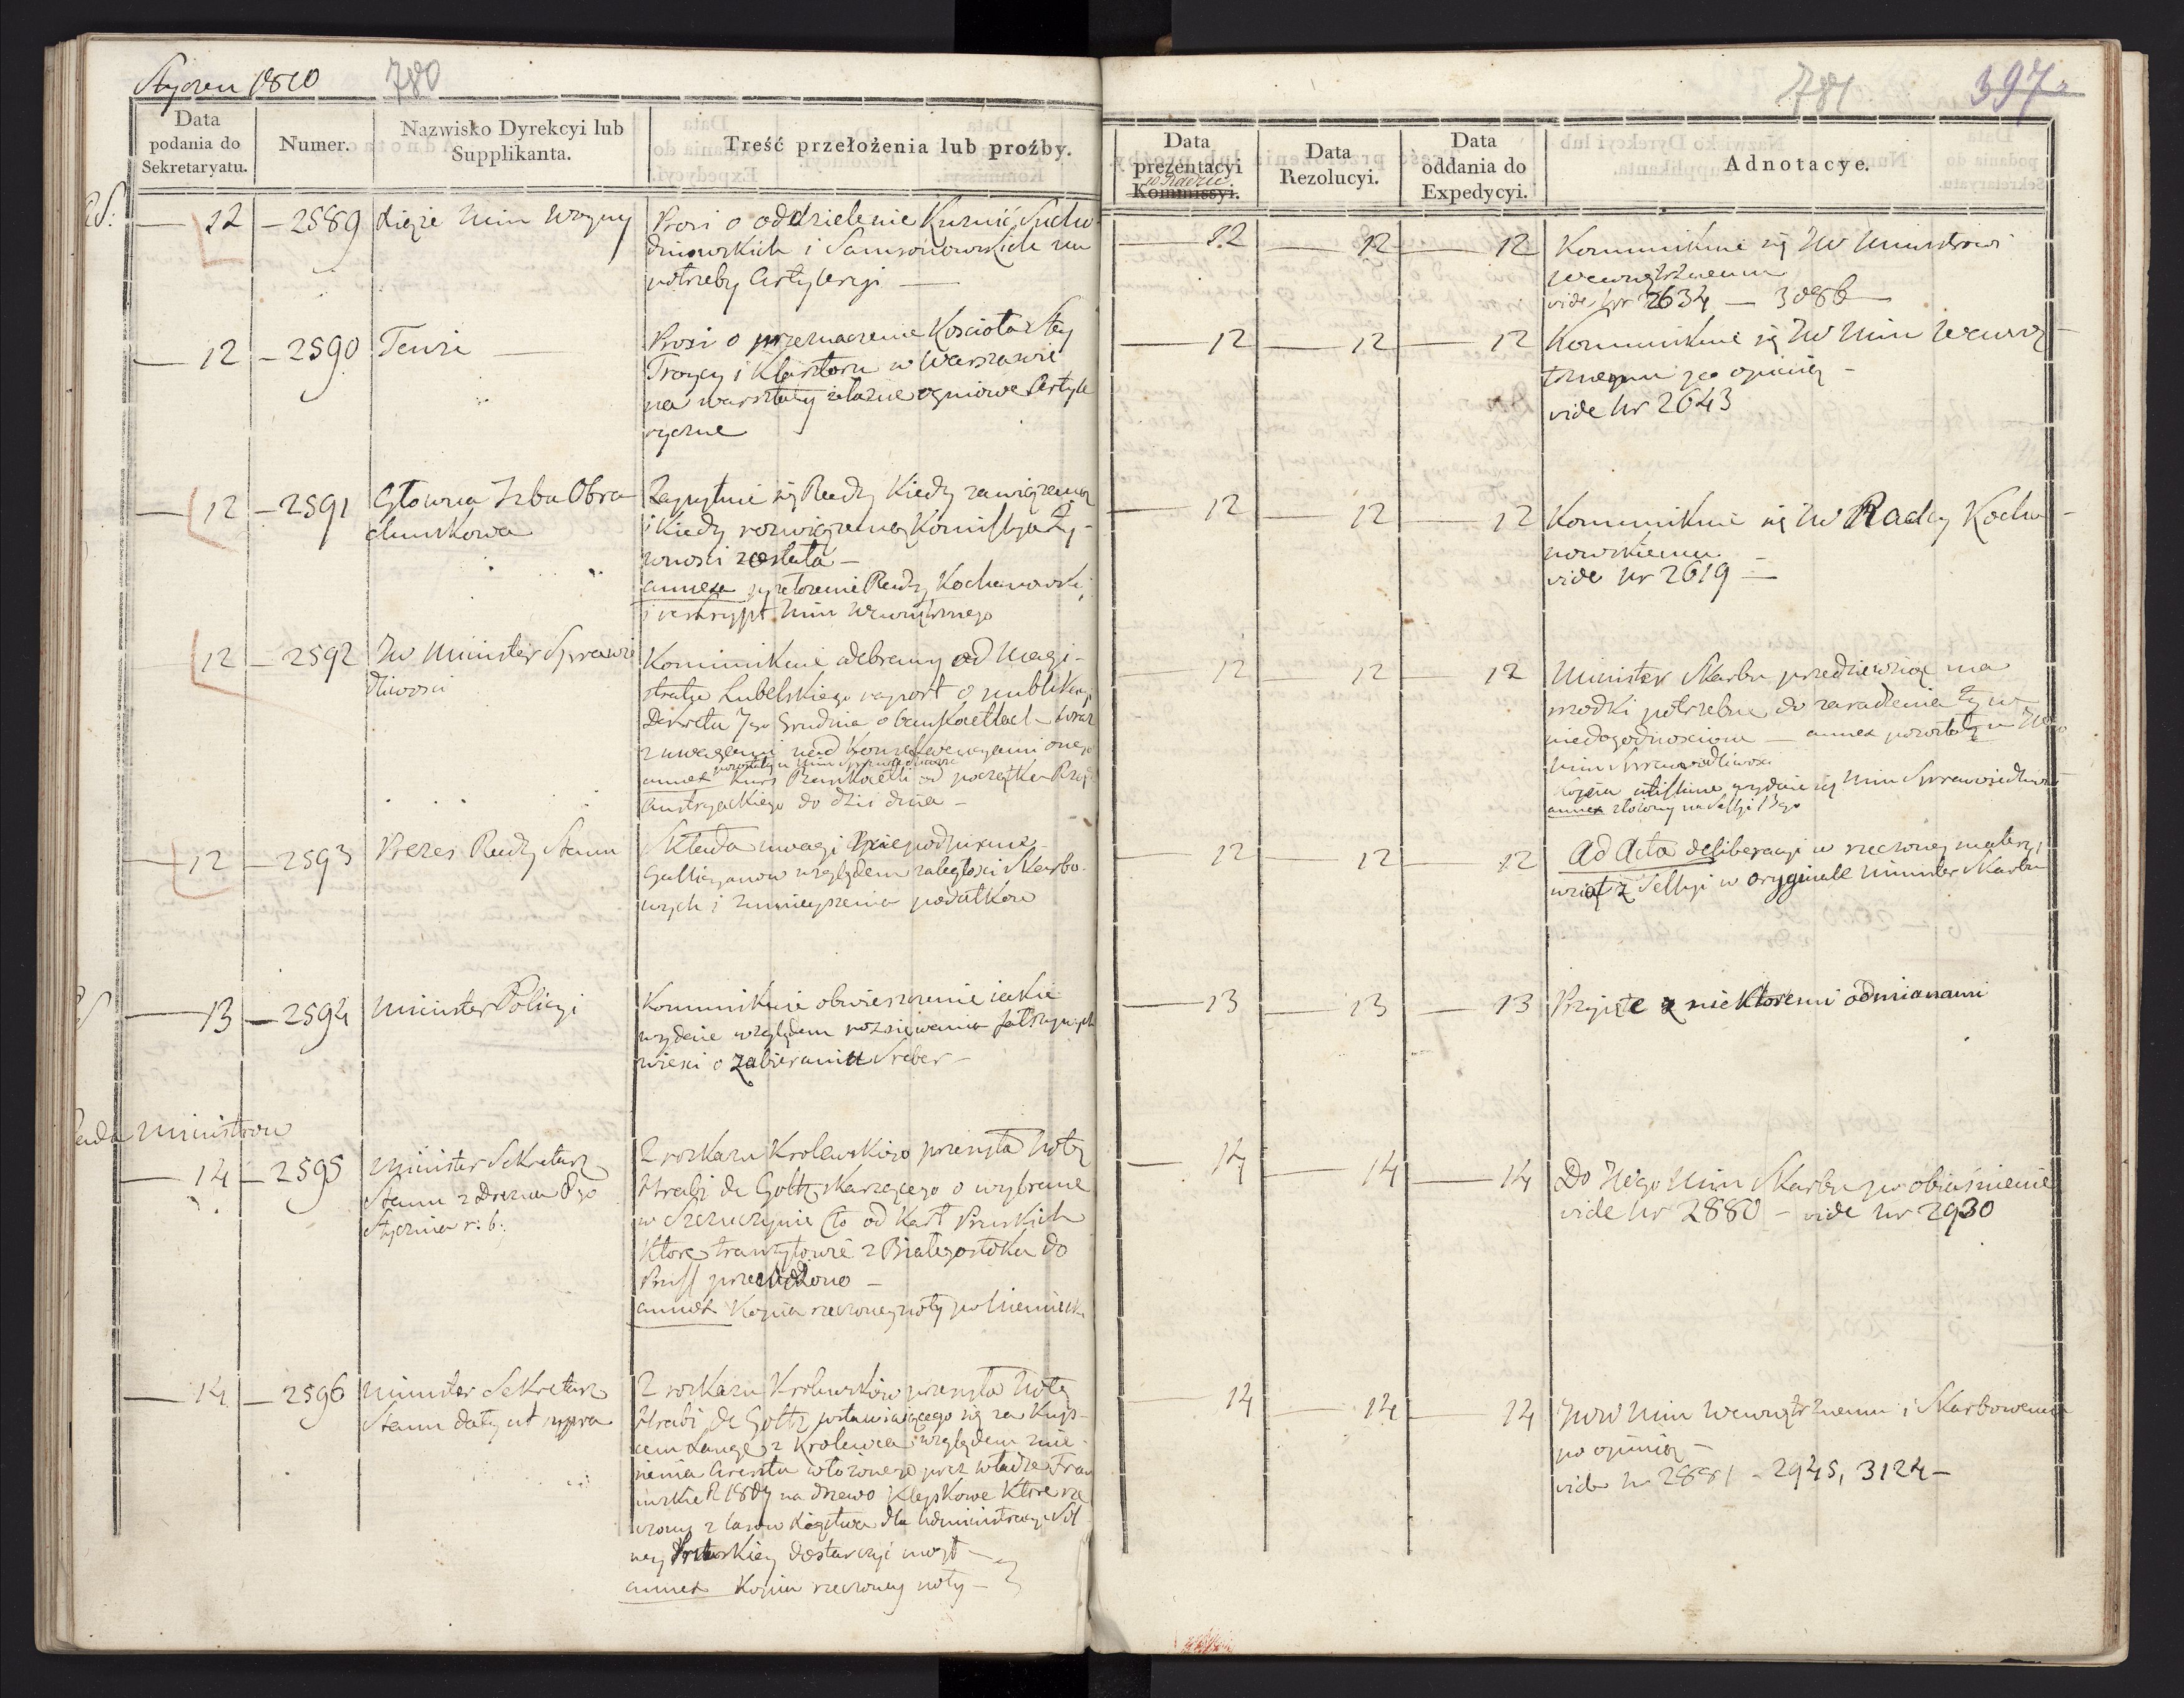 Styczeń 1810
780
Data
podania do
Sekretaryatu.
Numer.
Nazwisko Dyrekcyi lub
Supplikanta.
Treść przełożenia lub proźby.
12 - 2589 Xiąże Min Woyny
Prosi o oddzielenie Kuźnic Sucho
dniowskich i Samsonowskich na
potrzeby Artyleryi
12 - 2590 Tenże
Prosi o przeznaczenie Kościoła S Tey
Troycy i Klasztoru w Warszawie
na warsztaty żelazne ogniowe Artyle
ryczne
12 - 2591 Główna Izba Obra
chunkowa
Zapytuie się Rady kiedy zawiązaną
i kiedy rozwiązaną Komissya Ży-
wności została -
annexa przełożenie Radzy Kochanowski
i reskrypt Min Wewnętrznego
12 - 2592 JW Minister Sprawie
dliwości
Kommunikuie odebrany od Magi-
stratu Lubelskiego raport o publikacyi
Dekretu 7go Grudnia o bankocetlach - wraz
z uwagami nad konsekwencyami onego
pozostały u Min Sprawiedliwości
annex Kurs Bankocetli od początku Rząd
Austryackiego do dziś dnia -
12 - 2593 Prezes Rady Stanu
Składa uwagi
Gallicyanow względem zaległości Skarbo-
wych i zmnieyszenia podatkow
13 - 2594 Minister Policyi
Kommunikuie obwieszczenie iakie
wydaie względem rozsiewania fałszywych
wieści o zabieraniu Sreber -
Rada Ministrow
14 - 2595 Minister Sekretarz
Stanu z Drezna 8go
Stycznia r: b:
Z rozkazu Krolewskiego przesyła Notę
Hrabi de Goltz skarzącego o wybrane
w Szczuczynie Cło od Kart Pruskich
ktore tranzytowie z Białegostoku do
Pruss przewieziono -
annex Kopia rzeczoney noty po niemieck
14 - 2596 Minister Sekretarz
Stanu daty ut supra
Z rozkazu Krolewskiego przesyła Notę
Hrabi de Goltz wstawiaiącego się za Kup-
cem Lange z Krolewca względem znie-
sienia Aresztu włożonego przez władze Fran
cuzkie R 1807 na drzewo klepkowe ktore rze
czony z lasow Xięstwa dla Administracyi Sol
ney Pruskiey dostarczyć miał -
annex Kopia rzeczoney noty -
781
397
Data
prezentacyi
w Radzie
Kommissyi.
Data
Rezolucyi.
Data
oddania do
Expedycyi.
Adnotacye.
12 12 12 Kommunikuie się JW Ministrowi
Wewnętrznemu
vide Nr 2634 - 3086
12 12 12 Kommunikuie się JW Min Wewnę-
trznemu po opinią -
vide Nr 2643
12 12 12 Kommunikuie się JW Radcy Kocha-
nowskiemu -
vide Nr 2619 -
12 12 12 Minister Skarbu przedsiewziąć ma
srzodki potrzebne do zaradzenia tym
niedogodnościom - annex pozostały u JWgo
Min Sprawiedliwości
Kopia wydaie się Min Sprawiedliwości
annex złożony na Sessyi 13go
12 12 12 Ad Acta deliberacyi w rzeczoney materyi
wziął z Sessyi w oryginale Minister Skarbu
13 13 13 Przyięte z niektoremi odmianami
14 14 14 Do JWgo Min Skarbu po obiaśnienie
vide Nr 2880 - vide Nr 2930
14 14 14 JWW Min Wewnętrznemu i Skarbowemu
po opinią -
vide Nr 2881 - 2945, 3124 -